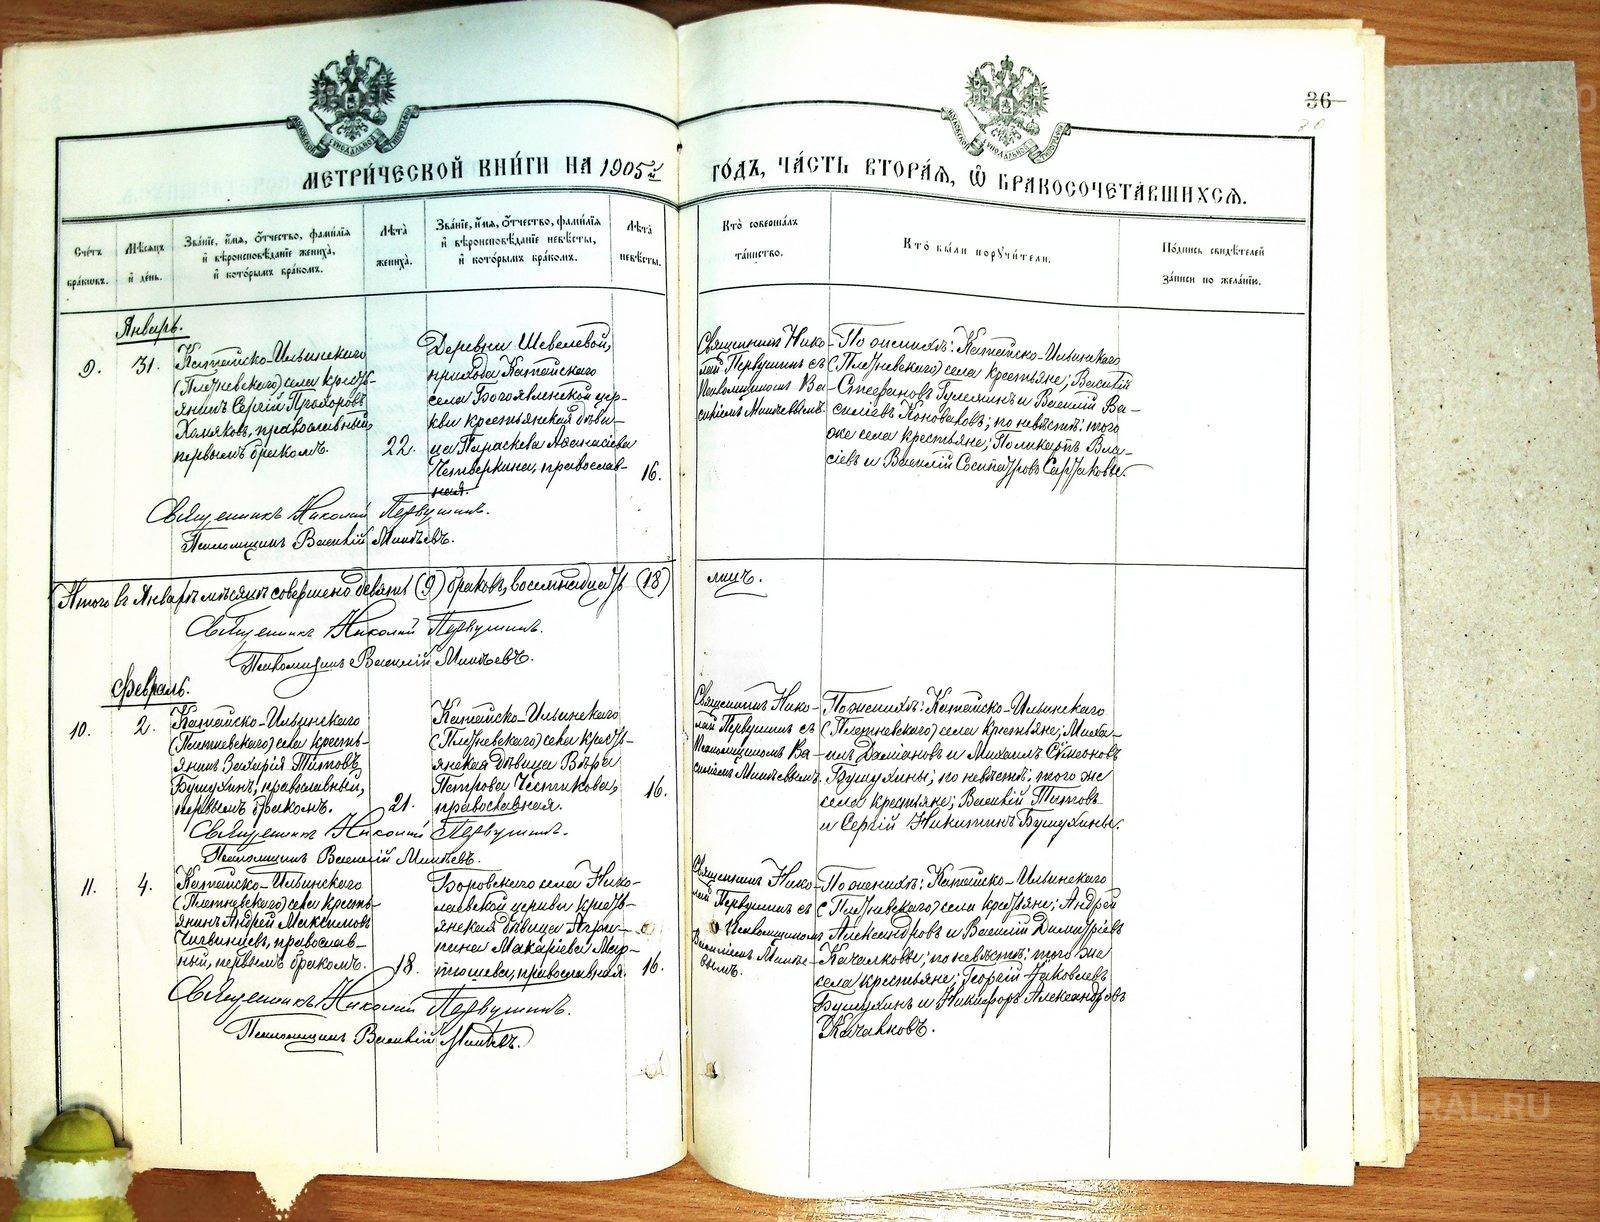 36
МЕТРИ́ЧЕСКОЙ КНИ́ГИ НА 1905й ГО́ДЪ, ЧА́СТЬ ВТОРА́Я, Ѡ БРАКОСОЧЕТА́ВШИХСЯ.
Сче́тъ браковъ.
Мѣсяцъ и́ день.
Зва́нїе, и́мя, о́тчество, фами́лїя и́ вѣроисповѣ́данїе жениха̀, и́ кото́рымъ бра́комъ.
Лѣта̀ жениха̀.
Зва́нїе, и́мя, о́тчество, фами́лїя и́ вѣроисповѣ́данїе невѣ́сты, и́ кото́рымъ бра́комъ.
Лѣта̀ невѣ́сты.
Кто̀ соверша́лъ та́инство.
Кто̀ бы́ли поручи́тели.
По́дпись свидѣ́телей за́писи по жела́нїю.
Январь.
9.
31.
Катайско-Ильинскаго
(Плетневскаго) села кресть-
янинъ Сергій Прохоровъ
Хомяковъ, православный,
первымъ бракомъ.
22.
Деревни Шевелевой,
прихода Катайскаго
села Богоявленской цер-
кви крестьянская дѣви-
ца Параскева Аѳанасіева
Четверкина, православ-
ная.
16.
Священникъ Нико-
лай Первушинъ съ
Псаломщикомъ Ва-
силіемъ Минѣевымъ
По женихѣ: Катайско-Ильинскаго
(Плетневскаго) села крестьяне; Василій
Стефановъ и Василій Ва-
силіевъ Коноваловъ; по невѣстѣ: того
же села крестьяне; Поликарпъ Вла-
сіевъ и Василій Сосипатровъ
Священникъ Николай Первушинъ.
Псаломщикъ Василій Минѣевъ.
Итого въ Январѣ мѣсяцѣ совершено девять (9) браковъ, восемнадцать (18) лицъ.
Священникъ Николай Первушинъ.
Псаломщикъ Василій Минѣевъ.
Февраль.
10.
2.
Катайско-Ильинскаго
(Плетневскаго) села кресть-
янинъ Захарія Титовъ
Бушухинъ, православный,
первымъ бракомъ.
21.
Катайско-Ильинскаго
(Плетневскаго) села кресть-
янская дѣвица Вѣра
Петрова Чистикова,
православная.
16.
Священникъ Нико-
лай Первушинъ съ
Псаломщикомъ Ва-
силіемъ Минѣевымъ.
По женихѣ: Катайско-Ильинскаго
(Плетневскаго) села крестьяне; Миха-
илъ Даміановъ и Михаилъ Симеоновъ
Бушухины; по невѣстѣ: того же
села крестьяне; Василій Титовъ
и Сергій Никитинъ Бушухины.
Священникъ Николай Первушинъ.
Псаломщикъ Василій Минѣевъ.
11.
4.
Катайско-Ильинскаго
(Плетневскаго) села кресть-
янинъ Андрей Максимовъ
православ-
ный, первымъ бракомъ.
18.
Боровскаго села Нико-
лаевской церкви кресть-
янская дѣвица Агри-
пина Макаріева Мар-
тюшева, православная.
16.
Священникъ Нико-
лай Первушинъ съ
Псаломщикомъ
Василіемъ Минѣе-
вымъ.
По женихѣ: Катайско-Ильинскаго
(Плетневскаго) села крестьяне; Андрей
Александровъ и Василій Димитріевъ
Качалковы; по невѣстѣ: того же
села крестьяне; Георгій Яковлевъ
Бушухинъ и Никифоръ Александровъ
Качалковъ.
Священникъ Николай Первушинъ.
Псаломщикъ Василій Минѣевъ.